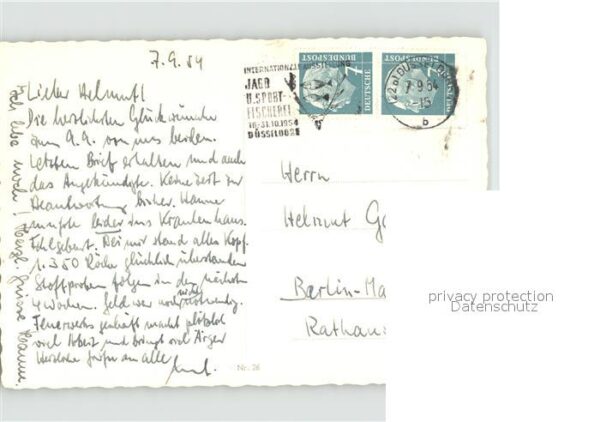 7.9.54
Lieber Helmut!
Die herzlichsten Glückwünsche
zum 9.9. von uns beiden.
Letzten Brief erhalten und auch
das Angekündigte. Keine Zeit zur
Beantwortung bisher. Hanne
mußte leider ins Krankenhaus.
Fehlgeburt. Bei mir stand alles Kopf.
1.350 Röcke glücklich überstanden
Stoffproben folgen in den nächsten
4 Wochen. Geld war noch nicht notwendig.
Feuerwerksgeschäft macht plötzlich
viel Arbeit und bringt viel Ärger
Herzliche Grüße an alle
Ich lebe noch! Herzl. Grüße Hanne.
INTERNATIONALE AUSSTELLUNG
JAGD
U. SPORT-
FISCHEREI
16.-31.10.1954
DÜSSELDORF
7 DEUTSCHE BUNDESPOST
7 DEUTSCHE BUNDESPOST
7.9.54
b
Herrn
Helmut G
Berlin-Ma
Rathau
Nr. 26
privacy protection
Datenschutz